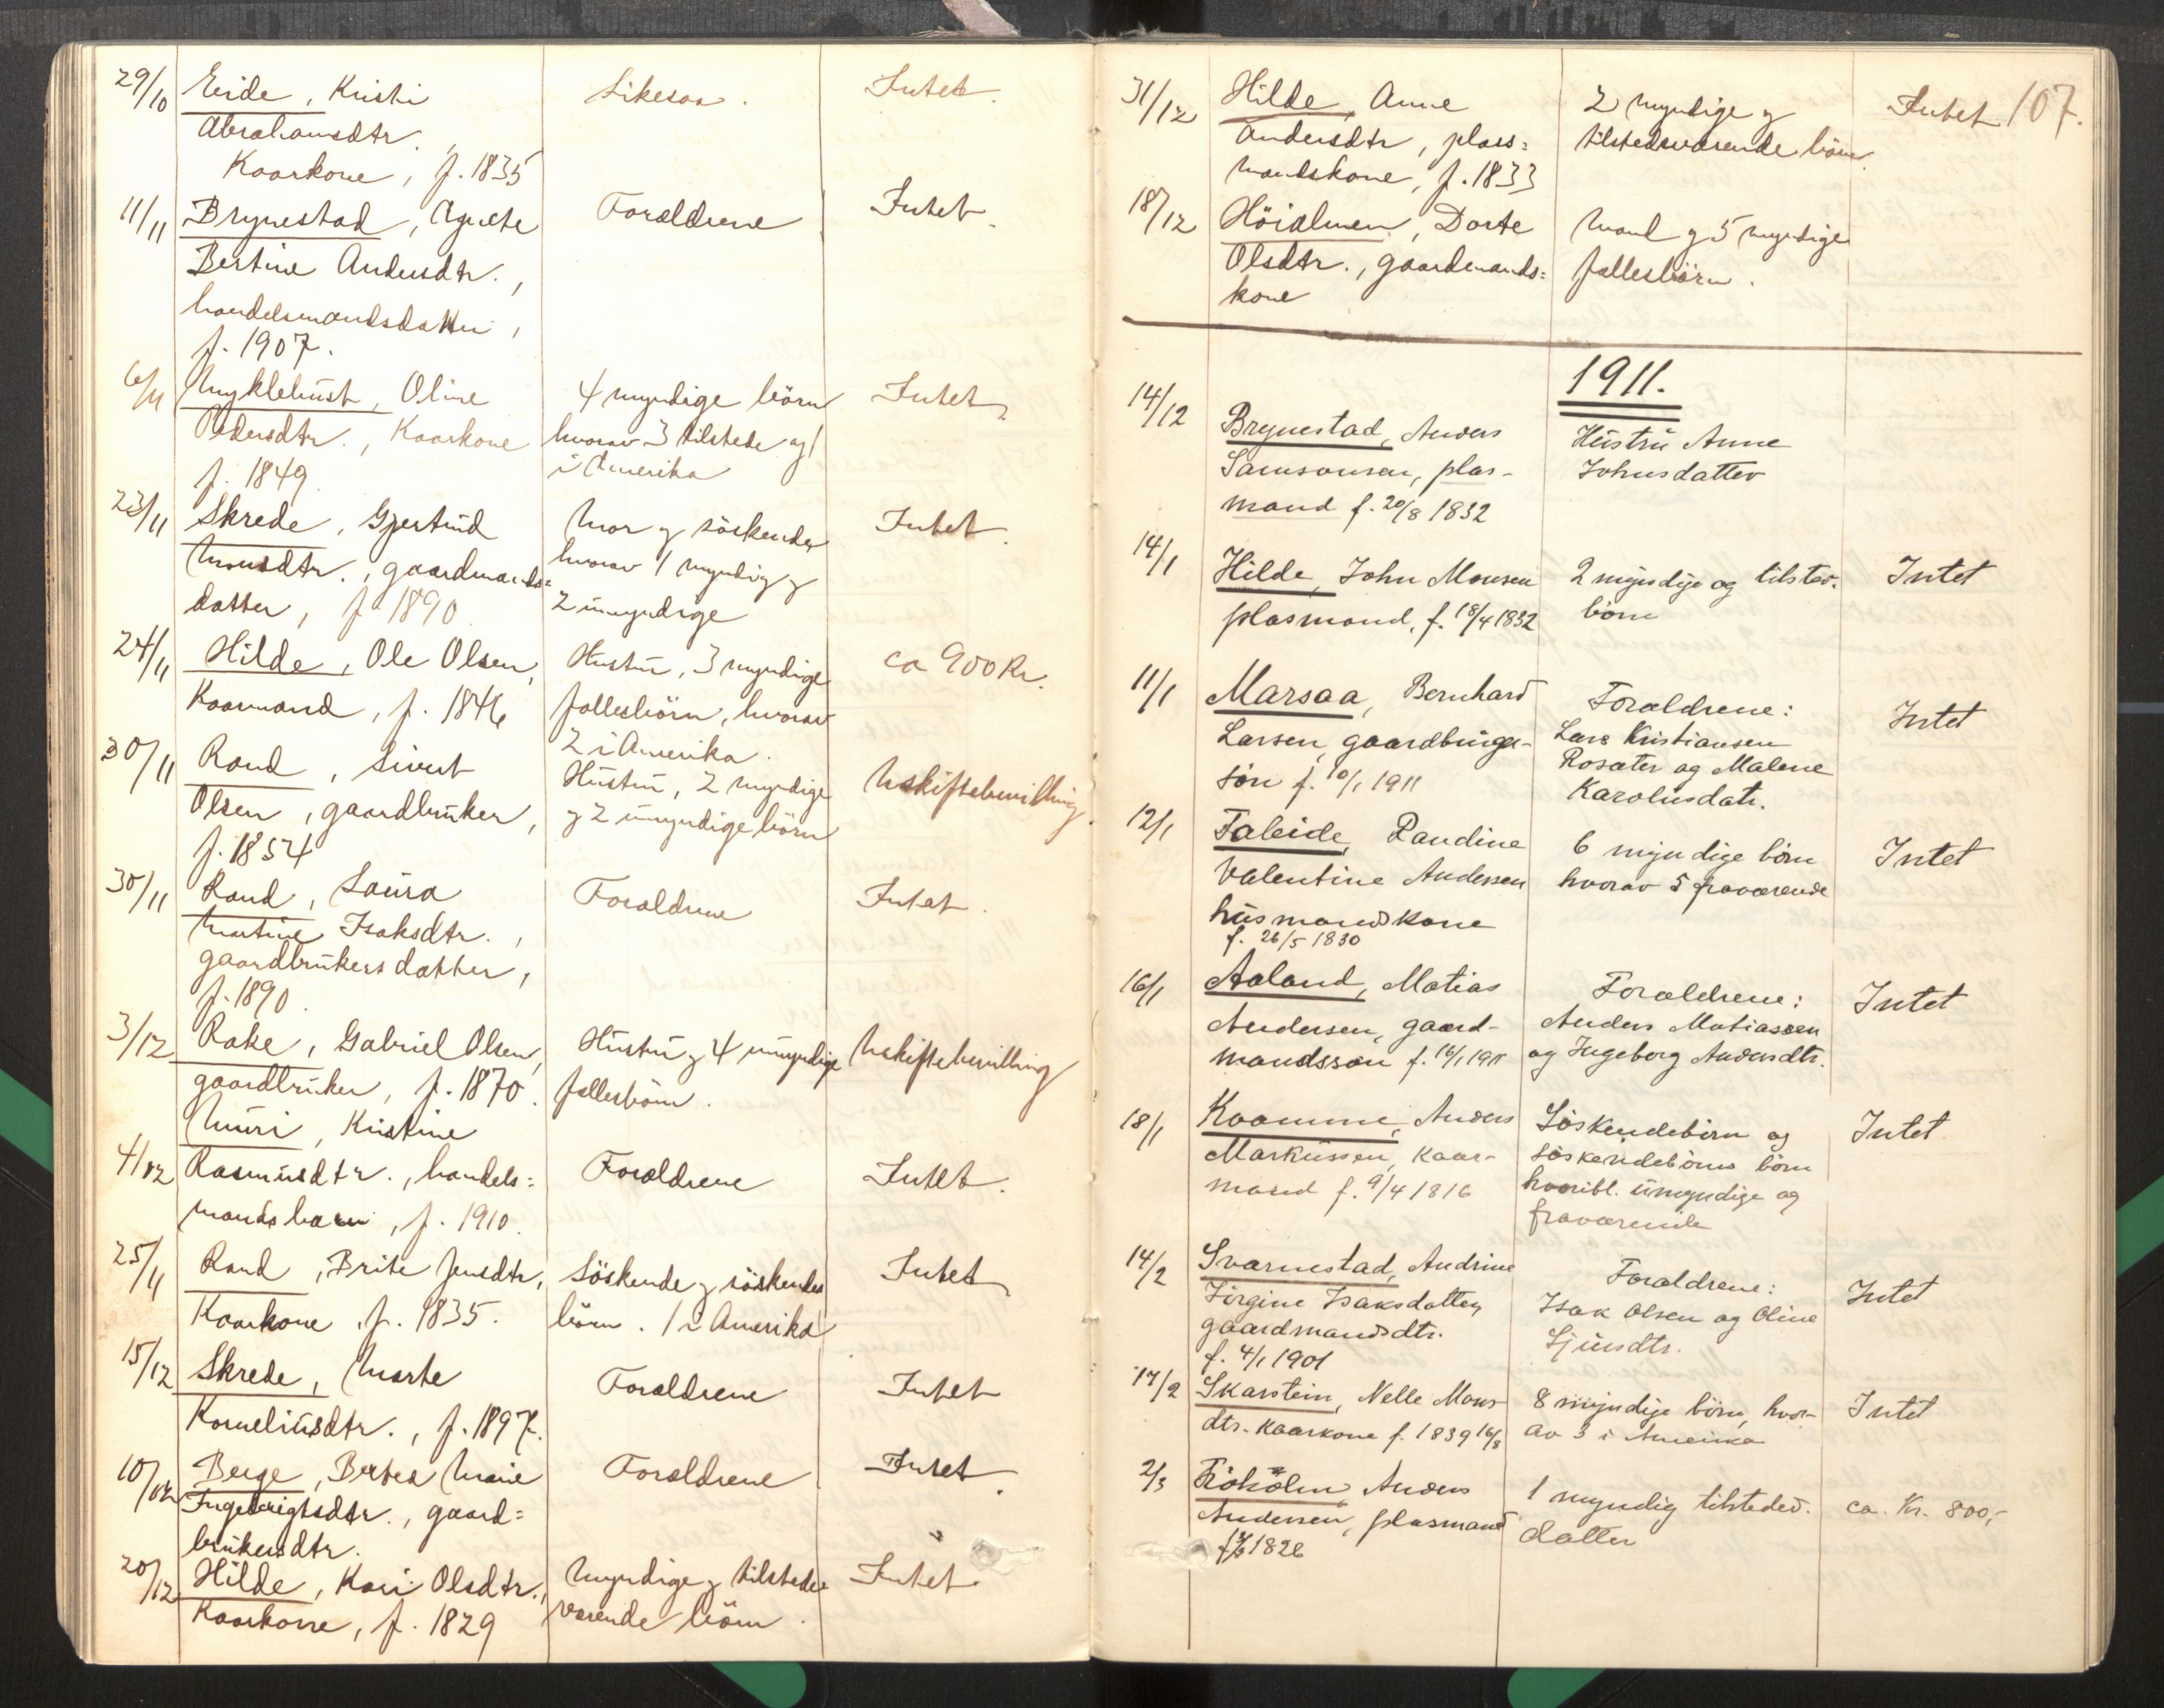 29/10 Eide, Kristi Likesaa. Intet.
Abrahamsdtr.,
Kaarkone, f. 1835
11/11 Brynestad, Agnete Forældrene Intet.
Bertine Andersdtr.,
handelsmandsdatter,
f. 1907.
6/11 Myklebust, Oline 4 myndige börn Intet
Pedersdtr., Kaarkone hvorav 3 tilstede og 1
f. 1849 i Amerika
23/11 Skrede, Gjertrud Mor og söskende Intet.
Monsdtr., gaardmands= hvorav 1 myndig og
datter, f. 1890 2 umyndige
24/11 Hilde, Ole Olsen, Hustru, 3 myndige ca 900 Kr.
Kaarmand, f. 1846 fællesbörn, hvorav
2 i Amerika.
30/11 Rand, Sivert Hustru, 2 myndige Uskiftebevilling.
Olsen, gaardbruker, og 2 umyndige börn
f. 1854
30/11 Rand, Laura Forældrene Intet.
Martine Isaksdtr.,
gaardbrukers datter,
f. 1890
3/12 Rake, Gabriel Olsen, Hustru og 4 umyndige Uskiftebevilling
gaardbruker, f. 1870. fællesbörn.
Muri, Kristine
4/12 Rasmusdtr., handels= Forældrene Intet.
mands barn, f. 1910.
25/11 Rand, Brite Jensdtr, Söskende og söskende Intet
Kaarkone, f. 1835. börn. 1 i Amerika
15/12 Skrede, Marte Forældrene Intet
Korneliusdtr., f. 1897.
10/12 Berge, Bertea Marie Forældrene Intet.
Ingebrigtsdtr., gaard=
brukersdtr.
20/12 Hilde, Kari Olsdtr., Myndige og tilstede Intet.
Kaarkone, f. 1829 værende börn.
107.
31/12 Hilde, Anne 2 myndige og Intet
Andersdtr, plass= tilstedeværende börn
mandskone, f. 1833
18/12 Höialmen, Dorte Mand og 5 myndige
Olsdtr., gaardmands= fællesbörn.
kone
1911.
14/12 Brynestad, Anders Hustru Anne
Samsonsen, plas- Johnsdatter
mand f. 20/8 1832
14/1 Hilde, John Monsen 2 myndige og tilstev. Intet
plasmand, f. 18/4 1832 börn
11/1 Marsaa, Bernhard Forældrene: Intet
Larsen, gaardbruger- Lars Kristiansen
sön f. 10/1 1911 Rosæter og Malene
Karolusdatr.
12/1 Faleide, Randine 6 myndige börn Intet
Valentine Andersen hvorav 5 fraværende
husmandskone
f. 26/5 1830
16/1 Aaland, Matias Forældrene: Intet
Andersen, gaard- Anders Matiassen
mandssön f. 16/1 1911 og Ingeborg Andersdtr.
18/1 Kaamme, Anders Söskendebörn og Intet
Markussen, Kaar- söskendebörns börn
mand f. 9/4 1816 hvoribl. umyndige og
fraværende
14/2 Svarnestad, Andrine Forældrene: Intet
Jörgine Isaksdatter, Isak Olsen og Oline
gaardmandsdtr. Sjursdtr.
f. 4/1 1901
17/2 Skarstein, Nelle Mons- 8 myndige börn, hvor- Intet
dtr. Kaarkone f. 1839 16/8 av 3 i Amerika
2/3 Fröholm, Anders 1 myndig tilstedev. ca. Kr. 800,-
Andersen, plasmand datter
1826